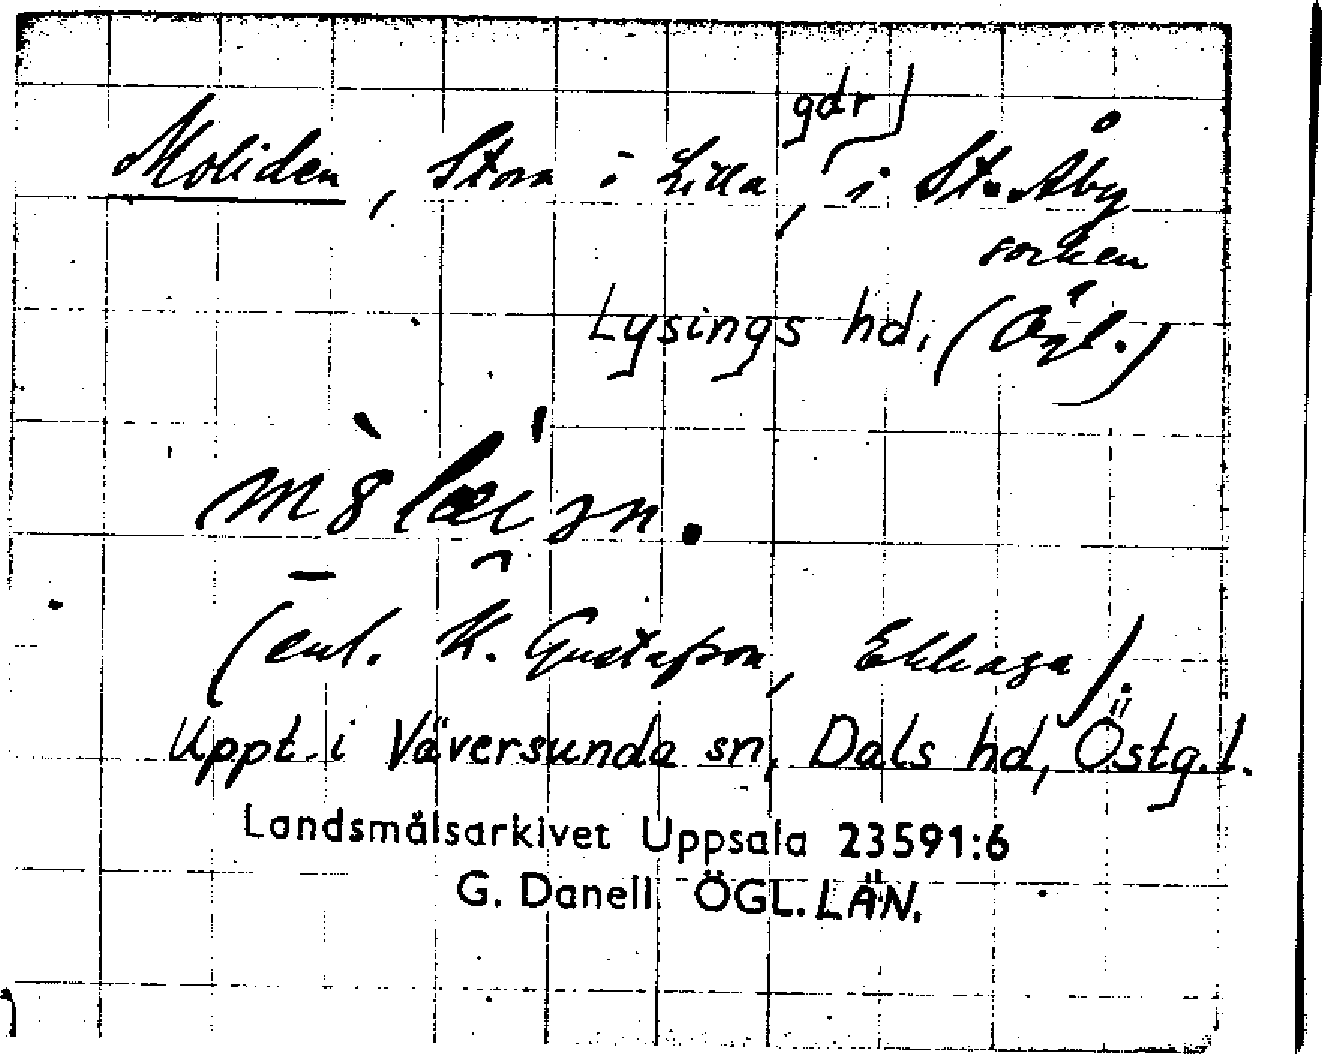 gdr
Moliden, Stora i Lilla, i St. Åby
socken
Lysings hd. (Ögl.)
(enl. K. Gustafson, Ekhaga).
Uppt. i Väversunda sn, Dals hd, Östg.l.
Landsmålsarkivet Uppsala 23591:6
G. Danell ÖGL. LÄN.